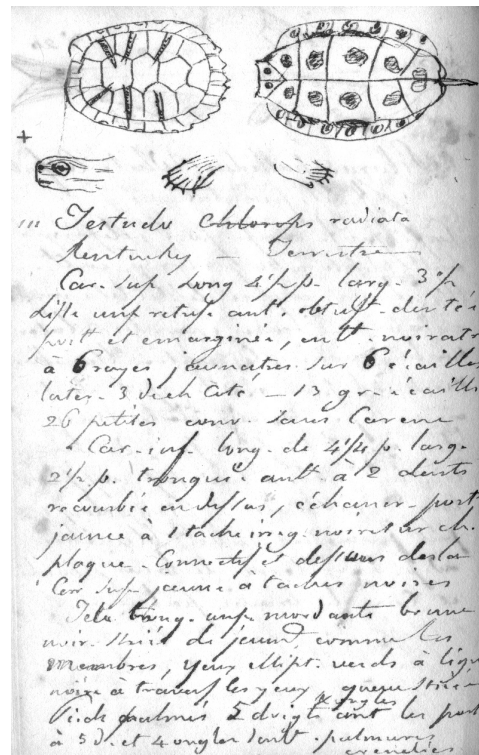 111 Testudo chlorops radiata
Kentucky — Terrestre
Car. sup. long 4½ p. larg. 3½ p
unf retuse ant. obtust. dentée
postt et emarginée, noiratre
à 6 rayes jaunatres sur 6 écailles
later. 3 de ch. côté — 13 gr. écailles
26 petites conv. sans carene
Car. inf. long. de 4¼ p. larg.
2½ p. tronquée antt à 2 dents
recourbée en dessus, échancr. postt
jaune à 1 tache irreg. noire sur ch.
plaque. Connectif et dessous de la
Car. sup. jaune à taches noires
Tete brune
noir. striée de jaune, comme les
membres, yeux ellipt. verds à ligne
noire à travers les yeux, queue striée
Pieds palmés 5 doigts et ongles antt les postt
à 5 d. et 4 ongles palmures